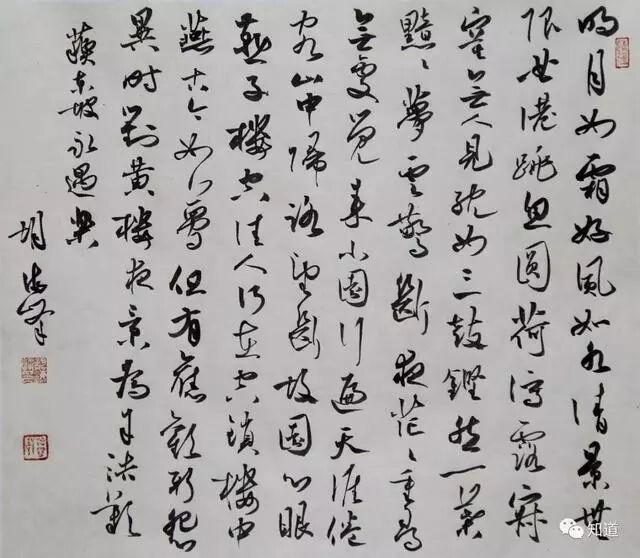 明月如霜好風如水清景無
限曲港跳魚圓荷瀉露寂
寞無人見紞如三鼓鏗然一葉
黯〻夢雲驚斷夜茫〻重尋
無處覺來小園行遍天涯倦
客山中歸路望斷故園心眼
燕子樓空佳人何在空鎖樓中
燕古今如夢但有舊歡新怨
異時對黃樓夜景為余浩歎
蘇東坡永遇樂
胡峰
知道